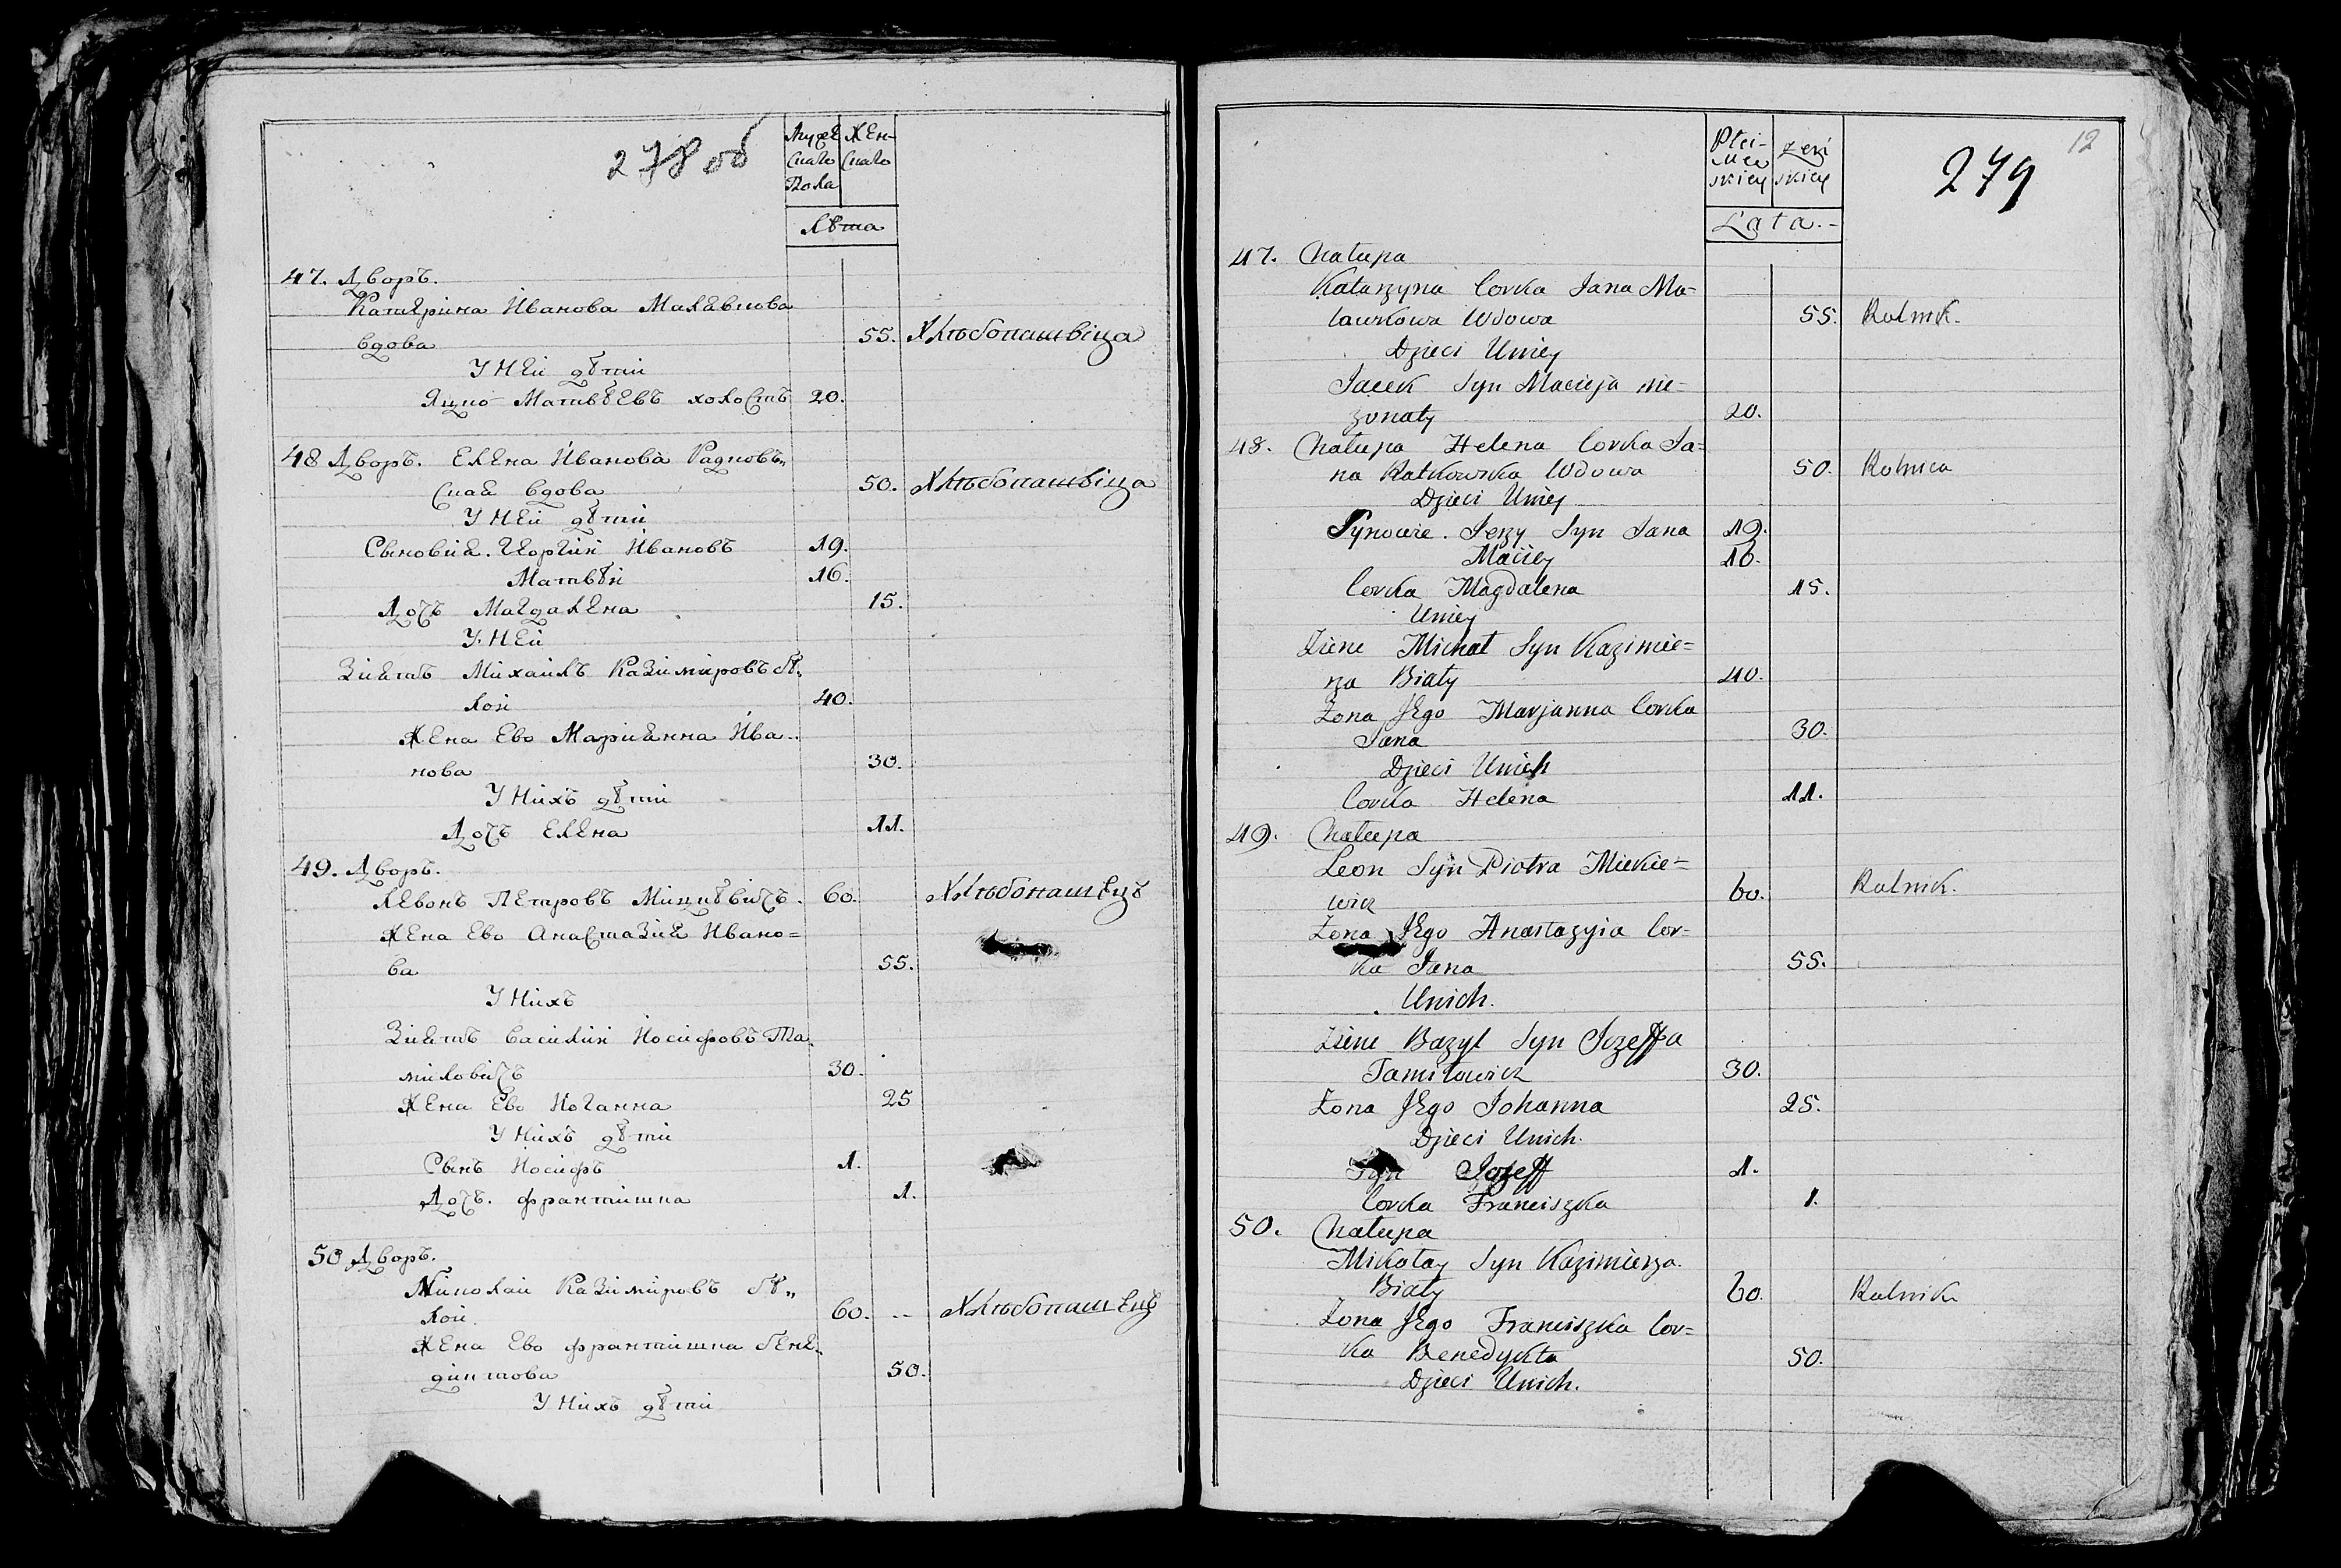 278 об
Мужес Жен-
скаго скаго
Пола
Лѣта
47. Дворъ.
Катярина Иванова Малявкова
вдова 55. Хлѣбопашвіца
У Ней дѣти
Яцко Матвѣевъ холостъ 20.
48 Дворъ. Елена Иванова Радковъ„
ская вдова 50. Хлѣбопашвіца
У Ней дѣти
Сыновия. Георгій Ивановъ 19.
Матвѣй 16.
Дочь Магдалена 15.
У Ней
Зиять Михаилъ Казимировъ Бѣ„
лой 40.
Жена Ево Марианна Ива-
нова 30.
У Нихъ дѣти
Дочь Елена 11.
49. Дворъ.
Левонъ Петровъ Мицкѣвичъ. 60. Хлѣбопашецъ
Жена Ево Анастазия Ивано=
ва 55.
У Нихъ
Зиять Василий Иосифовъ Та„
миловичъ 30.
Жена Ево Иоганна 25
У Нихъ дѣти
Сынъ Иосифъ 1.
Дочь. Франтишка 1.
50 Дворъ.
Николай Казимировъ Бѣ„
лой. 60. -- Хлѣбопашецъ
Жена Ево Франтишка Бене„
диктова 50.
У Нихъ дѣти
12
279
Płci-
męz żeń
skiey skiey
Lata.-
47. Chałupa
Katarzyna Corka Jana Ma=
lawkowa Wdowa 55. Rolnik.
Dzieci Uniey
Jacek Syn Macieja nie=
zonaty 20.
48. Chałupa Helena Corka Ja=
na Ratkowska Wdowa 50. Rolnica
Dzieci Uniey
Synowie. Jerzy Syn Jana 19.
Maciey 16.
Corka Magdalena 15.
Uniey
Zienc Michał Syn Kazimie=
rza Biały 40.
Zona Jego Marjanna Corka
Jana 30.
Dzieci Unich
Corka Helena 11.
49. Chałupa
Leon Syn Piotra Mickie=
wicz 60. Rolnik.
Zona Jego Anastazyia Cor=
ka Jana 55.
Unich.
Zienc Bazyl Syn Jozeffa
Tamiłowicz 30.
Zona Jego Johanna 25.
Dzieci Unich.
Syn Jozeff 1.
Corka Franciszka 1.
50. Chałupa
Mikołay Syn Kazimierza
Biały 60. Rolnik
Zona Jego Franciszka Cor=
ka Benedykta 50.
Dzieci Unich.